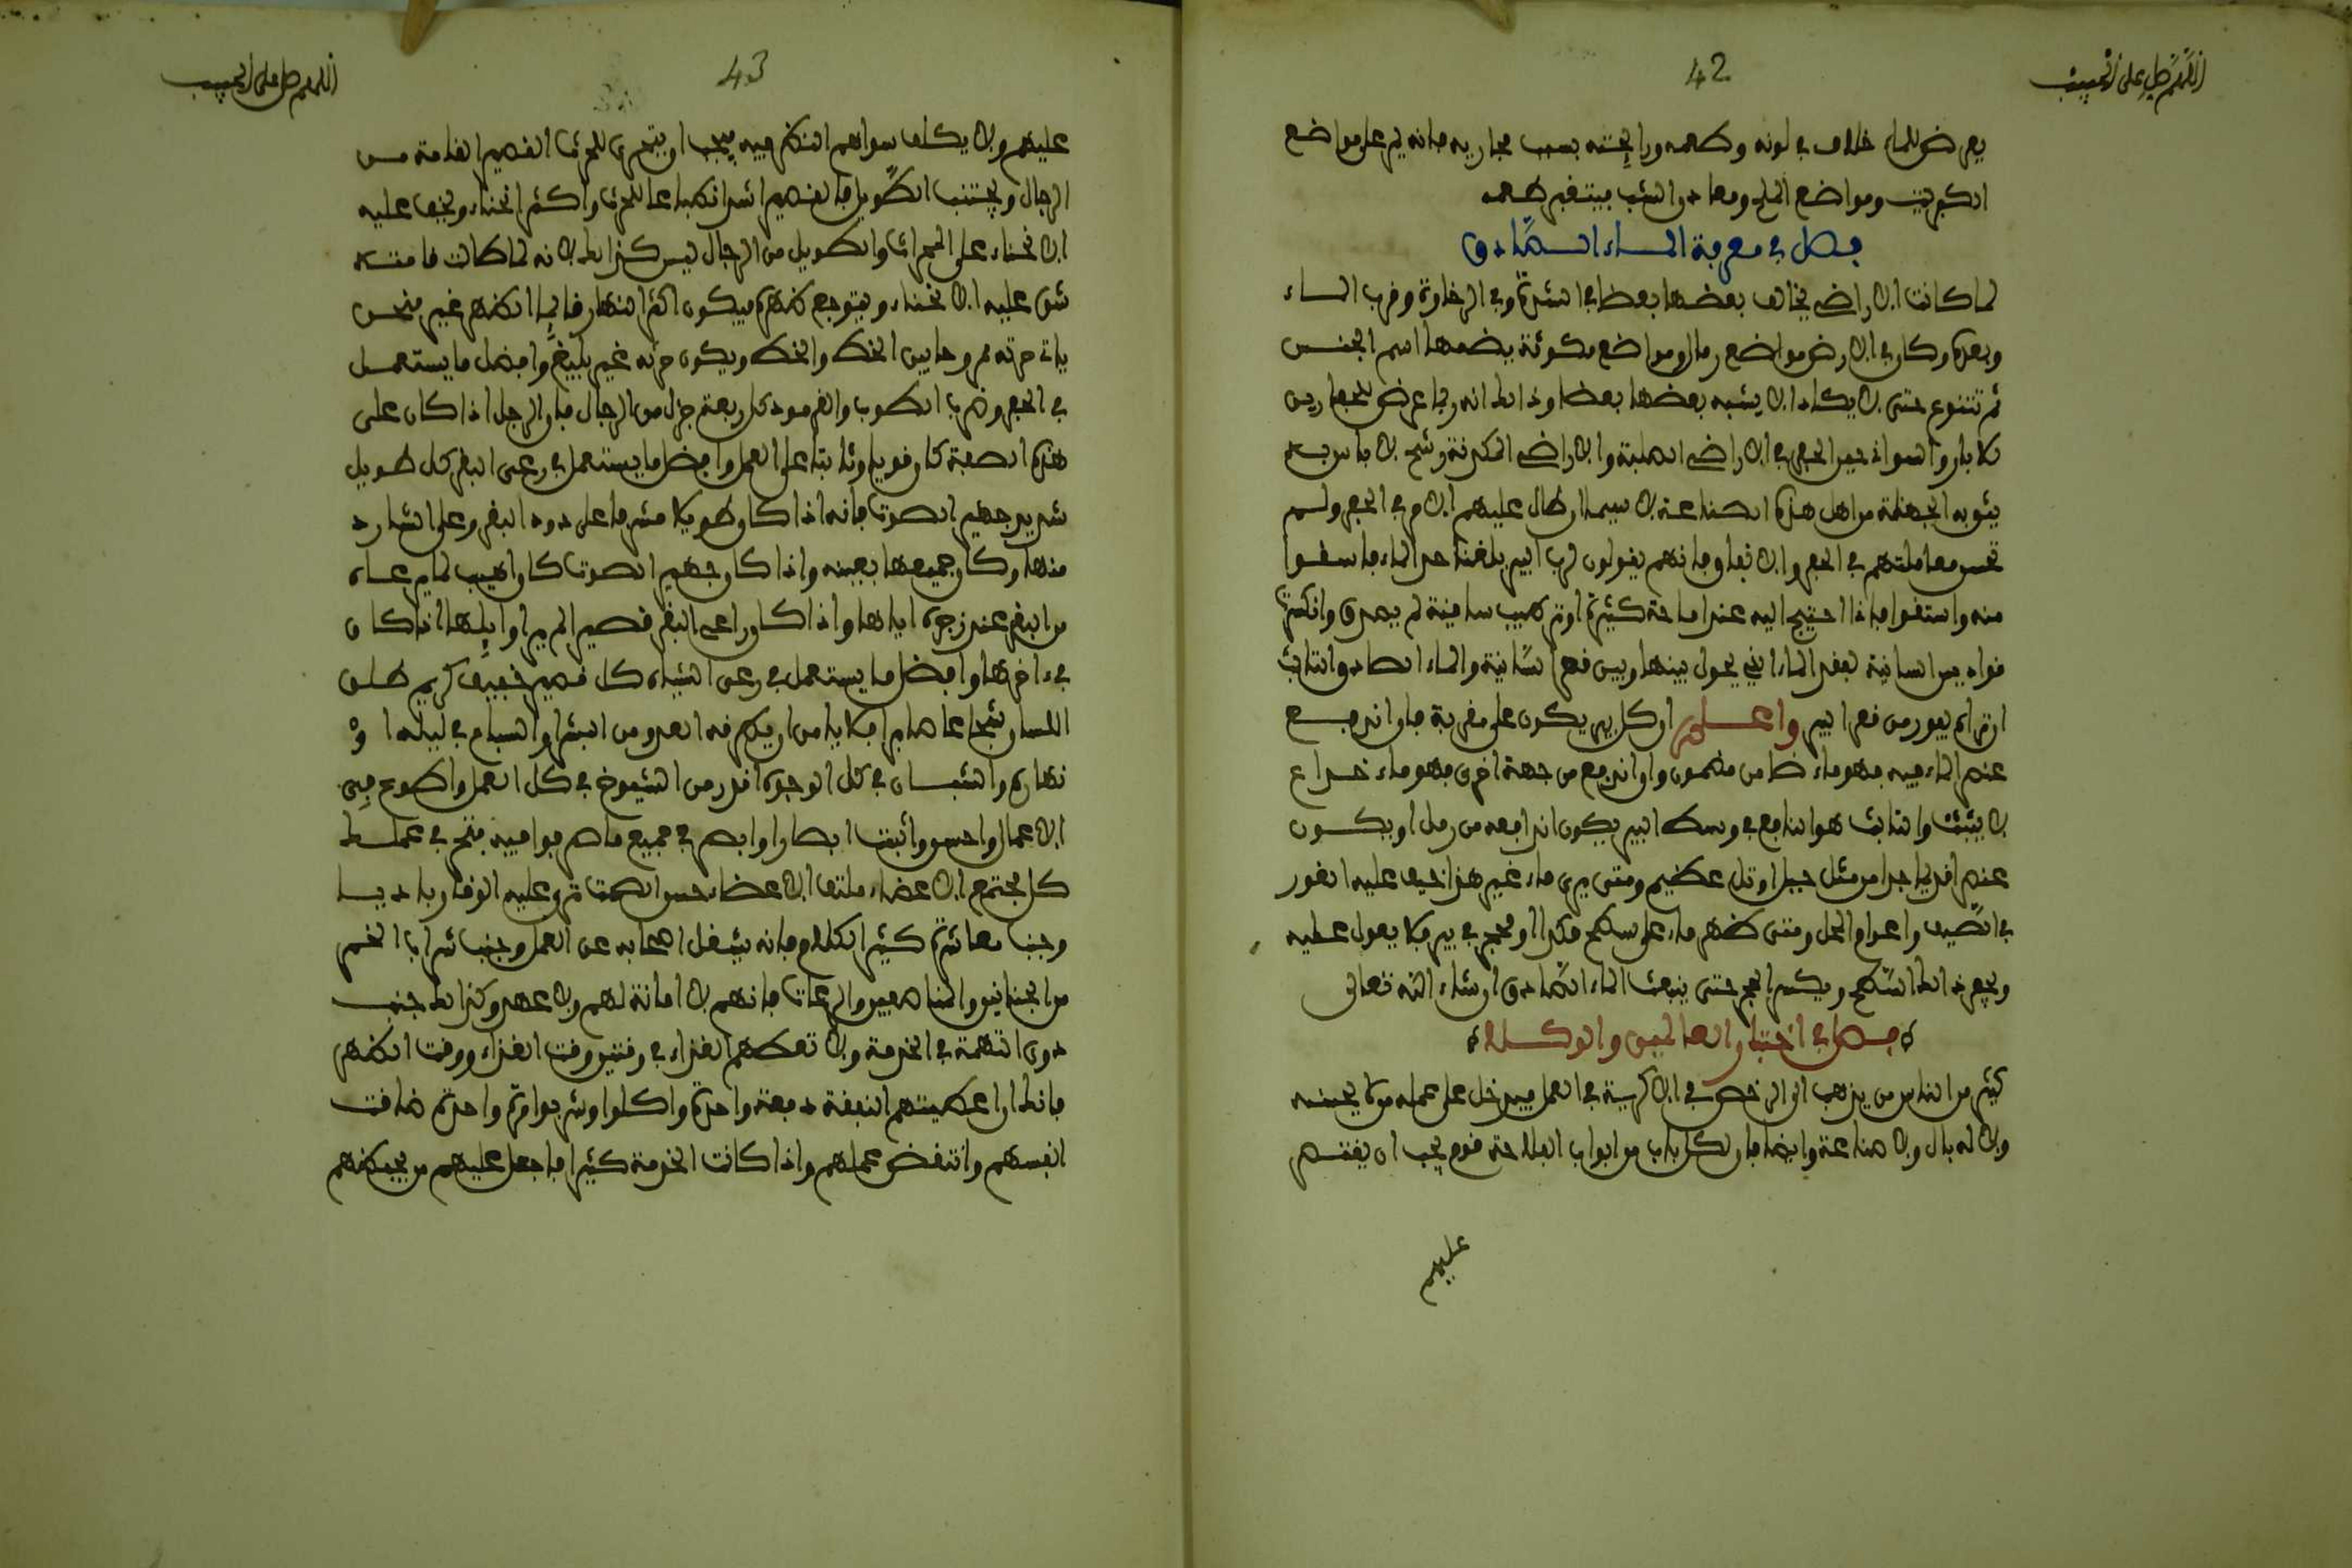 اللهم صل على الحبيب
42
يعرض للماء خلاف في لونه وطعمه ورايحته بسبب مجاريه فانه يمر على مواضع
الكبريت ومواضع الملح ومعادن الشب فيتغير طعمه
فصل في معرفة الماء الصادق
لما كانت الاراضي يخالف بعضها بعضا في الشدة وفي الرخاوة وقرب الماء
وبعده وكان في الارض مواضع رمال ومواضع مكونة يضمها اسم الجنس
ثم تتنوع حتى لا يكاد ان يشبه بعضها بعضا وذالك انه ربما عرض للحفارين
للابار والسواني حين الحفر في الاراضي الصلبة والاراضي الكدنة رشح لا باس به
يثوبه الجهلة من اهل هذه الصناعة لا سيما ان طال عليهم الامر في الحفر ولم
تحسن معاملتهم في الحفر والانفاق فانهم يقولون لرب البير بلغنا حد الماء فاسقوا
منه واستقوا فاذا احتيج اليه عند املاحة كثيرة او تركيب سانية لم يصدق وانكسرت
قواديس السانية لبعد الماء الذي يحول بينها وبين قعر السانية والماء الصادق الثابت
ان تراه يفور من قعر البير واعلم ان كل بير يكون على مقربة فان اندفع
عنصر الماء فيه فهو ماء ضامن مضمون وان اندفع من جهة اخرى فهو ماء خداع
لا يثبت والثابت هو النابع في وسط البير يكون اندفاعه من رمل او يكون
عنصر قريبا جدا من مثل جبل او تل عظيم ومتى يرى ماء غير هذا خيف عليه الغور
في الصيف واعوام المحل ومتى ظهر ماء على سطح مكدا او محجر في بير فلا يعول عليه
ويحفر ذالك السطح ويكسر الحجر حتى ينبعث الماء الصادق ان شاء الله تعالى
فصل في اختيار العاملين والوكلاء
كثير من الناس من يذهب الى الرخص في الاكرية في العمل فيدخل على عمله من لا يحسنه
ولا له بال ولا صناعة وايضا فان لكل باب من ابواب الفلاحة قوم يجب ان يقتصر
عليهم
اللهم صل على الحبيب
43
عليهم ولا يكلف سواهم النظر فيه فيجب ان يتحرى للحرث القصير القامة من
الرجال ويجتنب الطويل فالقصير اشد انكبابا على الحرث واكثر انحناء ويخف عليه
الانحناء على المحراث والطويل من الرجال ليس كذالك لانه لما طالت قامته
شق عليه الانحناء ويتوجع ظهره فيكون اكثر النهار قايما الظهر غير منحن
ياتي حرثه مروحا بين الخط والخط ويكون حرثه غير بليغ وافضل ما يستعمل
في الحفر وضرب الطوب والقرمود كل ربعة جزل من الرجال فان الرجل اذا كان على
هذه الصفة كان قويا وثابتا على العمل وافضل ما يستعمل في رعي البقر كل طويل
شديد جهير الصوت فانه اذا كان طويلا مشرفا على دود البقر وعلى الشارد
منها وكان جميعها بعينه واذا كان جهير الصوت كان اهيب لما يرعاه
من البقر عند زجره اياها واذا كان راعي البقر قصيرا لم ير اوايلها اذا كان
في ءاخرها وافضل ما يستعمل في رعي الشياه كل قصير خفيف كريم طلق
اللسان شجاعا صابرا فلا يامن ان يطرقه العدو من البشر او السباع في ليله او
نهاره والشبان في كل الوجوه اقدر من الشيوخ في كل العمل واطوع في
الاعمال واحسن واثبت ابصارا وابصر في جميع ما هم بوافيه فتخير في عملك
كل مجتمع الاعضاء ملتف الاعضاء حسن الصمت ترى عليه الوقار باديا
وجنب معاشرة كثير الكلام فانه يشغل اصحابه عن العمل وجنب شراب الخمر
من الجنانين والمناصفين والرعات فانهم لا امانة لهم ولا عهد وكذالك جنب
ذوي التهمة في الخدمة ولا تعطهم الغذاء في وقتين وقت الغذاء ووقت الظهر
فانك ان اعطيتهم النفقة دفعة واحدة واكلوا وشربوا مرة واحدة ضاقت
انفسهم وانتقض عملهم واذا كانت الخدمة كثيرا فاجعل عليهم من يحفظهم